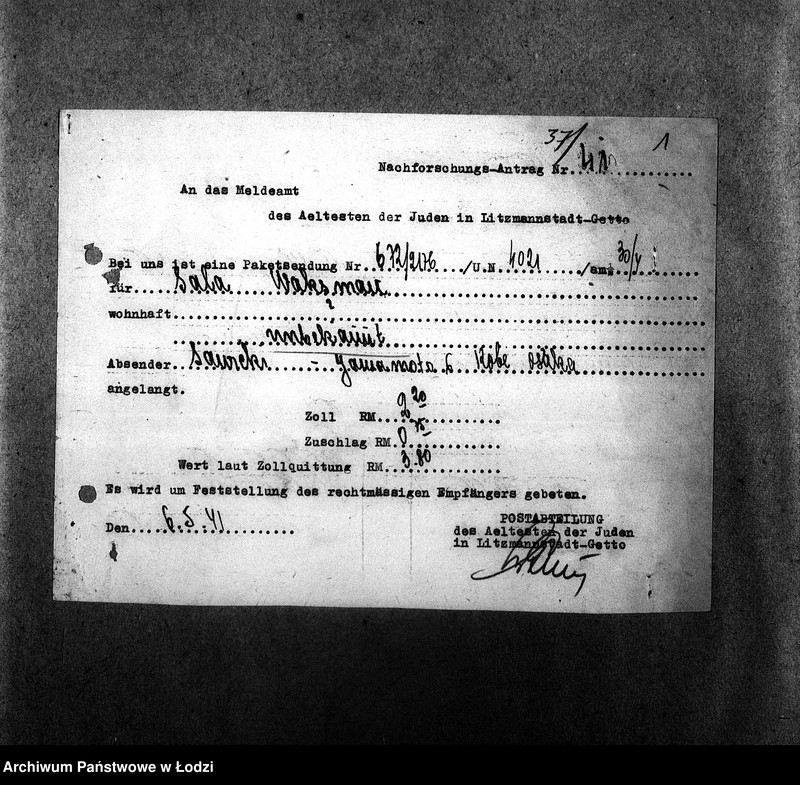 37/41 1
Nachforschungs-Antrag Nr.
An das Meldeamt
des Aeltesten der Juden in Litzmannstadt-Getto
Bei uns ist eine Paketsendung Nr. 672/2176 /U.N. 4021 /am 30/4
für Sala Waksman
wohnhaft ?
unbekannt
Absender Sawicki - Yamamoto 6 Kobe Osaka
angelangt.
Zoll RM.
Zuschlag RM. 0 75
Wert laut Zollquittung RM. 3.80
Es wird um Feststellung des rechtmässigen Empfängers gebeten.
Den 6.5.41
POSTABTEILUNG
des Aeltesten der Juden
in Litzmannstadt-Getto
Archiwum Państwowe w Łodzi